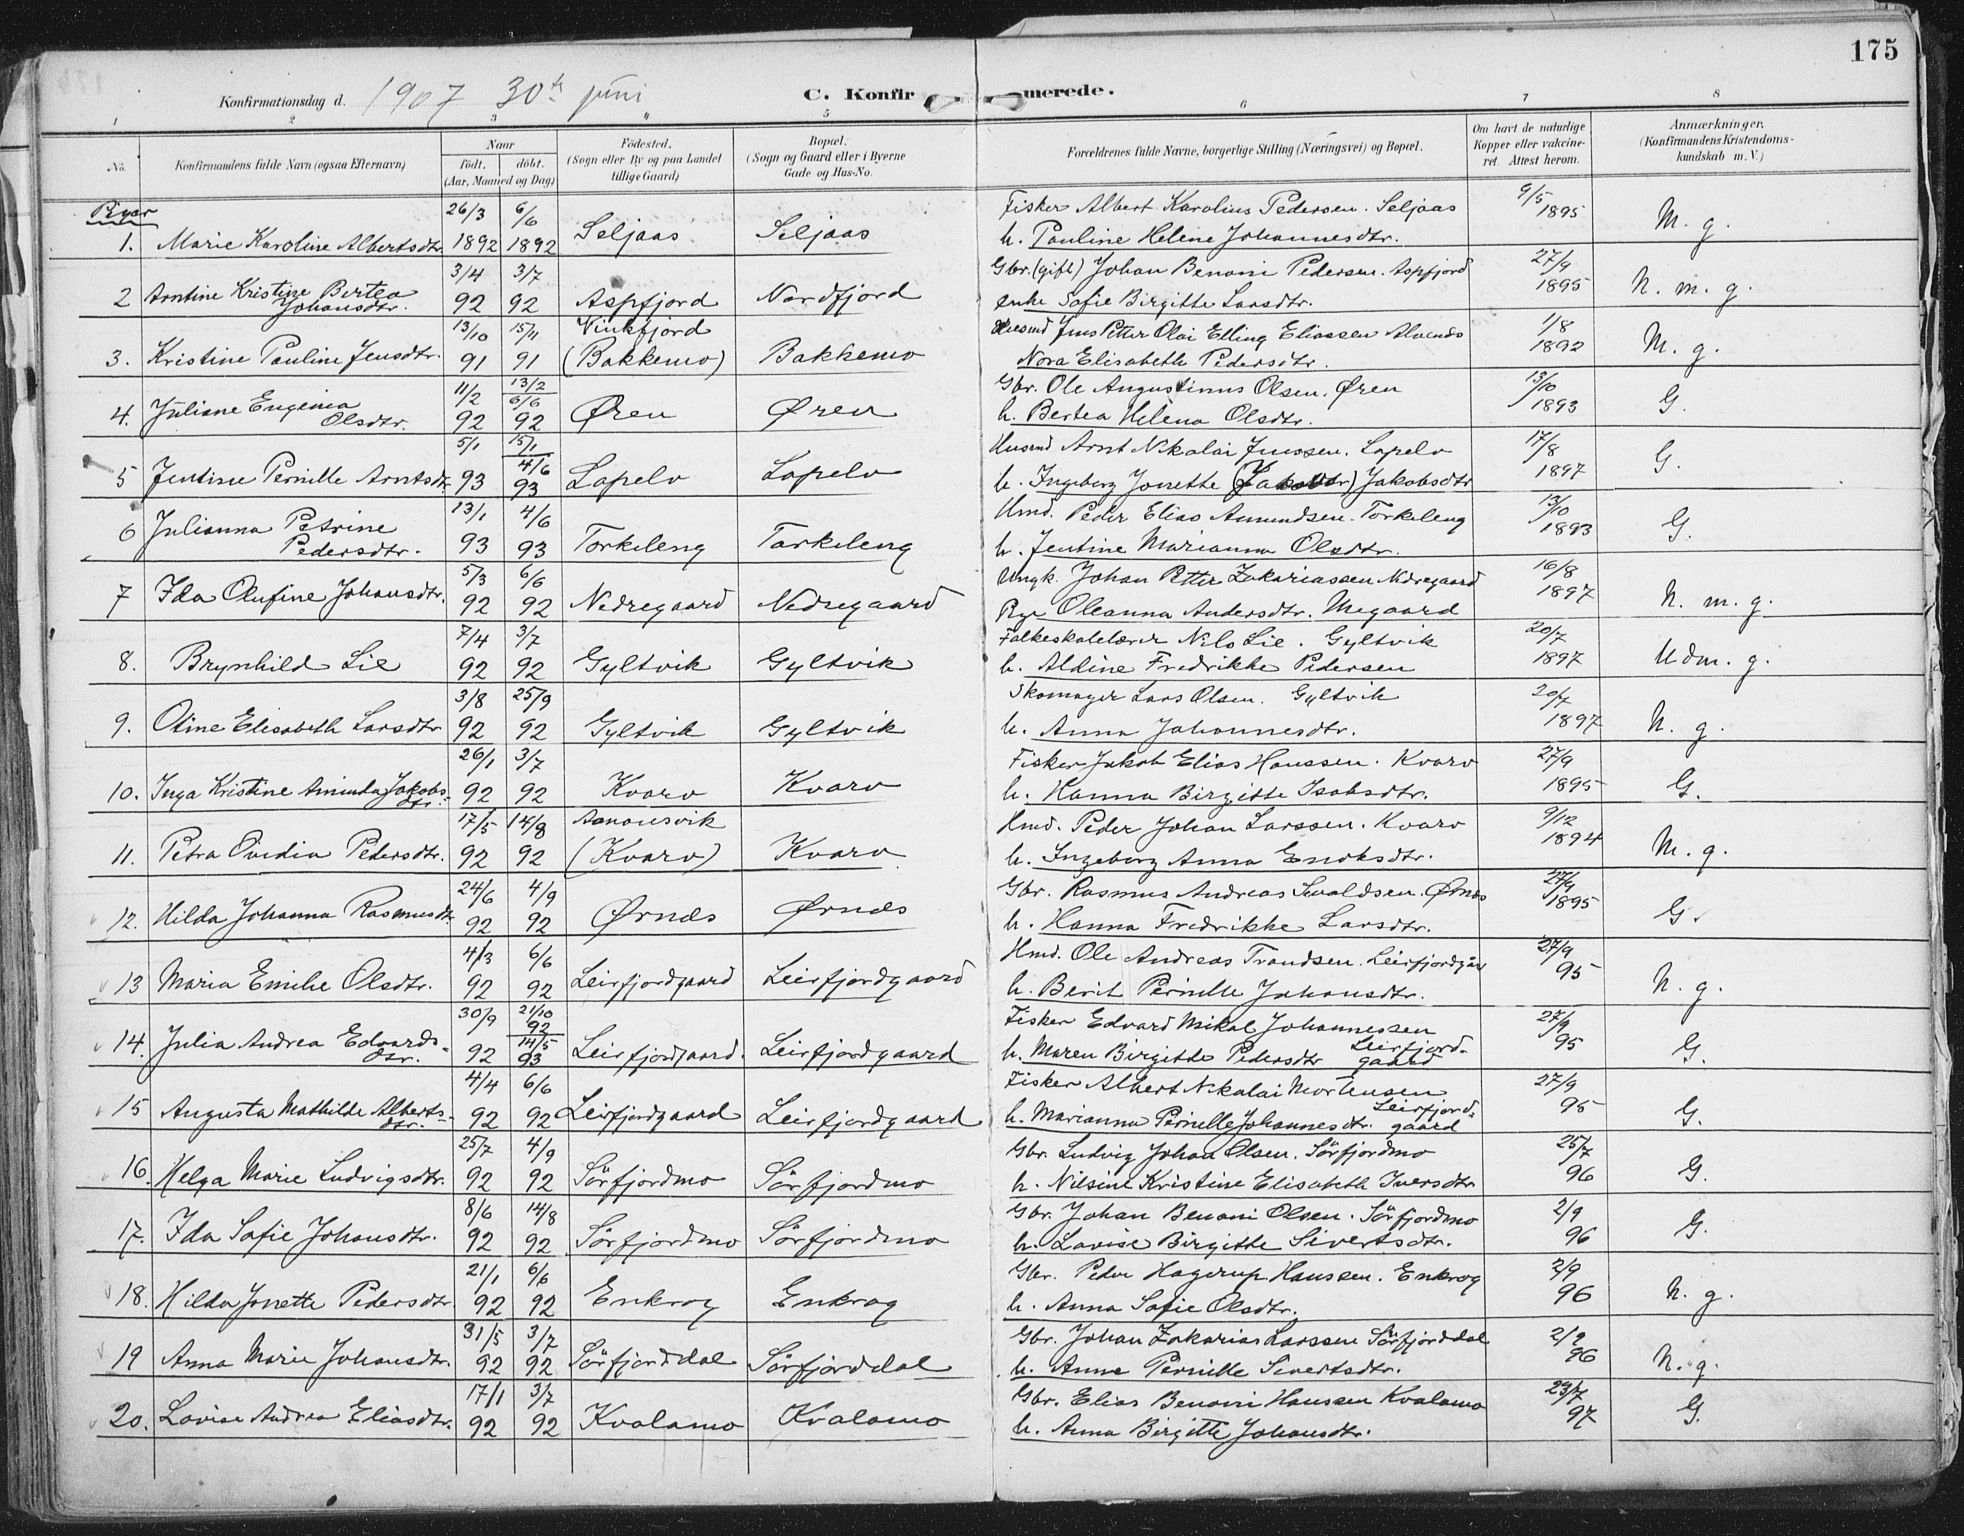 175
Konfirmationsdag d. 1907 30te juni C. Konfirmerede.
1 2 3 4 5 6 7 8
No. Konfirmandens fulde Navn (ogsaa Efternavn) Naar Födt. döbt. (Aar, Maaned og Dag) Födested. (Sogn eller By og paa Landet tillige Gaard) Bopæl. (Sogn og Gaard eller i Byerne Gade og Hus-No. Forældrenes fulde Navne, borgerlige Stilling (Næringsvei) og Bopæl. Om havt de naturlige Kopper eller vakcineret. Attest herom. Anmærkninger. (Konfirmandens Kristendomskundskab m. V.)
Piger
26/3 6/6 Fisker Albert Karolius Pedersen. Seljaas 9/5
1. Marie Karoline Albertsdtr. 1892 1892 Seljaas Seljaas h. Pauline Helene Johannesdtr. 1895 M. g.
3/4 3/7 Gbr. (gift) Johan Benoni Pedersen. Aspfjord 27/9
2 Arntine Kristine Bertea Johansdtr. 92 92 Aspfjord Nordfjord enke Sofie Birgitte Larsdtr. 1895 N. m. g.
13/10 15/11 Vinkfjord Jens Petter Olai Elling Eliassen 1/8
3. Kristine Pauline Jensdtr. 91 91 (Bakkemo) Bakkemo Nora Elisabeth Pedersdtr. 1892 M. g.
11/2 13/2 6/6 Gbr. Ole Augustinus Olsen. Øren 13/10
4. Juliane Eugenia Olsdtr. 92 92 Øren Øren h. Bertea Helena Olsdtr. 1893 G.
5/1 15/1 4/6 Husmd Arnt Nikolai Jenssen. Lapelv 17/8
5 Jentine Pernille Arntsdtr. 93 93 Lapelv Lapelv h. Ingeborg Jonette (Jakobsdtr) Jakobsdtr 1897 G.
13/1 4/6 Hmd. Peder Elias Amundsen. Torkileng 13/10
6 Julianna Petrine Pedersdtr. 93 93 Torkileng Torkileng h. Jentine Marianna Olsdtr. 1893 G.
5/3 6/6 Ungk. Johan Petter Zakariassen Nedregaard 16/8
7 Ida Olufine Johansdtr. 92 92 Nedregaard Nedregaard Pige Oleanna Andersdtr. Megaard 1897 N. m. g.
7/4 3/7 Folkeskolelærer Nils Lie. Gyltvik 20/7
8. Brynhild Lie 92 92 Gyltvik Gyltvik h. Aldine Fredrikke Pedersen 1897 Udm. g.
3/8 25/9 Skomager Lars Olsen. Gyltvik 20/7
9. Otine Elisabeth Larsdtr 92 92 Gyltvik Gyltvik h. Anna Johannesdtr. 1897 N. g.
26/1 3/7 Fisker Jakob Elias Hanssen. Kvarv 27/9
10. Inga Kristine Aminda Jakobsdtr. 92 92 Kvarv Kvarv h. Hanna Birgitte Isaksdtr. 1895 G.
17/5 14/8 Aanausvik Hmd. Peder Johan Larssen. Kvarv 9/12
11. Petra Ovidia Pedersdtr. 92 92 (Kvarv) Kvarv h. Ingeborg Anna Enoksdtr. 1894 M. g.
24/6 4/9 Gbr. Rasmus Andreas Sevaldsen. Ørnes 27/9
12. Hilda Johanna Rasmusdtr. 92 92 Ørnes Ørnes h. Hanna Fredrikke Larsdtr. 1895 G.
4/3 6/6 Hmd. Ole Andreas Trondsen. Leirfjordgård 27/9
13 Maria Emilie Olsdtr. 92 92 Leirfjordgaard Leirfjordgaard h. Berit Pernille Johansdtr. 95 N. g.
30/9 21/10 92 Fisker Edvard Mikal Johannessen 27/9
14. Julia Andrea Edvardsdtr. 92 14/5 93 Leirfjordgaard. Leirfjordgaard h. Maren Birgitte Pedersdtr Leirfjordgaard 95 G.
4/4 6/6 Fisker Albert Nikolai Mortensen 27/9
15 Augusta Mathilde Albertsdtr. 92 92 Leirfjordgaard Leirfjordgaard h. Marianna Pernille Johannesdtr. Leirfjordgaard 95 G.
25/7 4/9 Gbr. Ludvig Johan Olsen. Sörfjordmo 25/7
16. Helga Marie Ludvigsdtr. 92 92 Sörfjordmo Sörfjordmo h. Nilsine Kristine Elisabeth Iversdtr 96 G.
8/6 14/8 Gbr. Johan Benoni Olsen. Sörfjordmo 2/9
17. Ida Sofie Johansdtr. 92 92 Sörfjordmo Sörfjordmo h. Lovise Birgitte Sivertsdtr. 96 G.
21/1 6/6 Gbr. Peder Hagerup Hanssen. Enkrog 2/9
18. Hilda Jonette Pedersdtr. 92 92 Enkrog Enkrog h. Anna Sofie Olsdtr. 96 N. g.
31/5 3/7 Gbr. Johan Zakarias Larssen Sörfjorddal 2/9
19 Anna Marie Johansdtr. 92 92 Sörfjorddal Sörfjorddal h. Anne Pernille Sivertsdtr. 96 N. g.
17/1 3/7 Gbr. Elias Benoni Hanssen Kvalamo 23/7
20. Lovise Andrea Eliasdtr. 92 92 Kvalamo Kvalamo h. Anna Birgitte Johansdtr. 97 G.